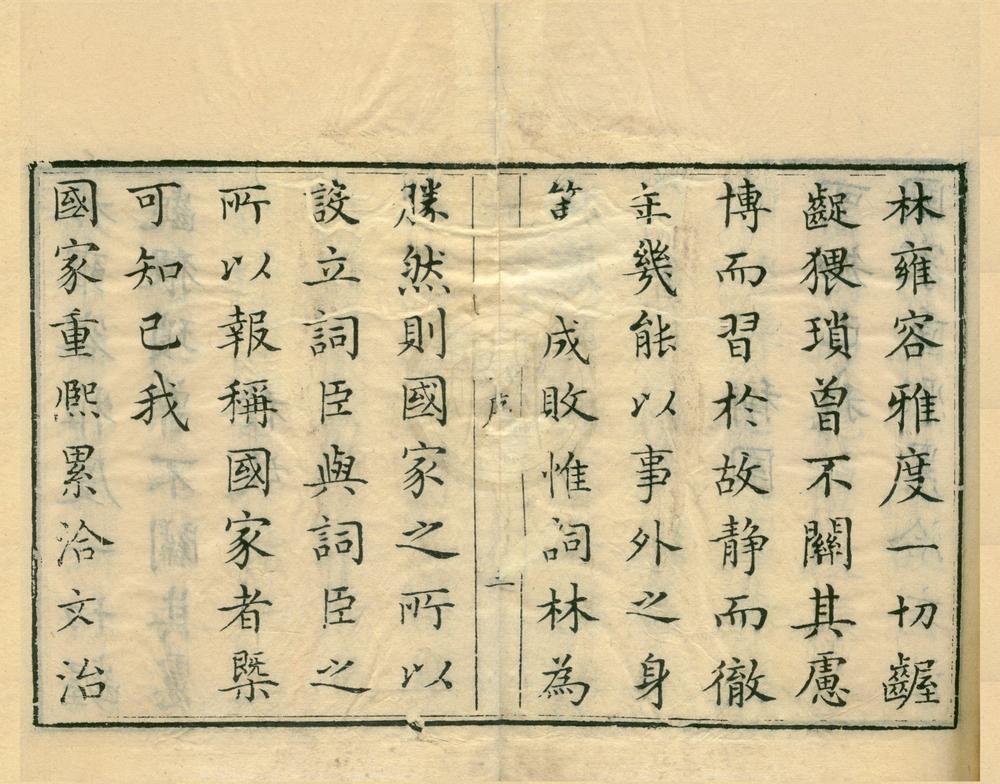 林雍容雅度一切齷
齪猥瑣曾不關其慮
博而習於故靜而徹
幾能以事外之身
成敗惟詞林為
序
二
勝然則國家之所以
設立詞臣與詞臣之
所以報稱國家者槩
可知已我
國家重熈累洽文治